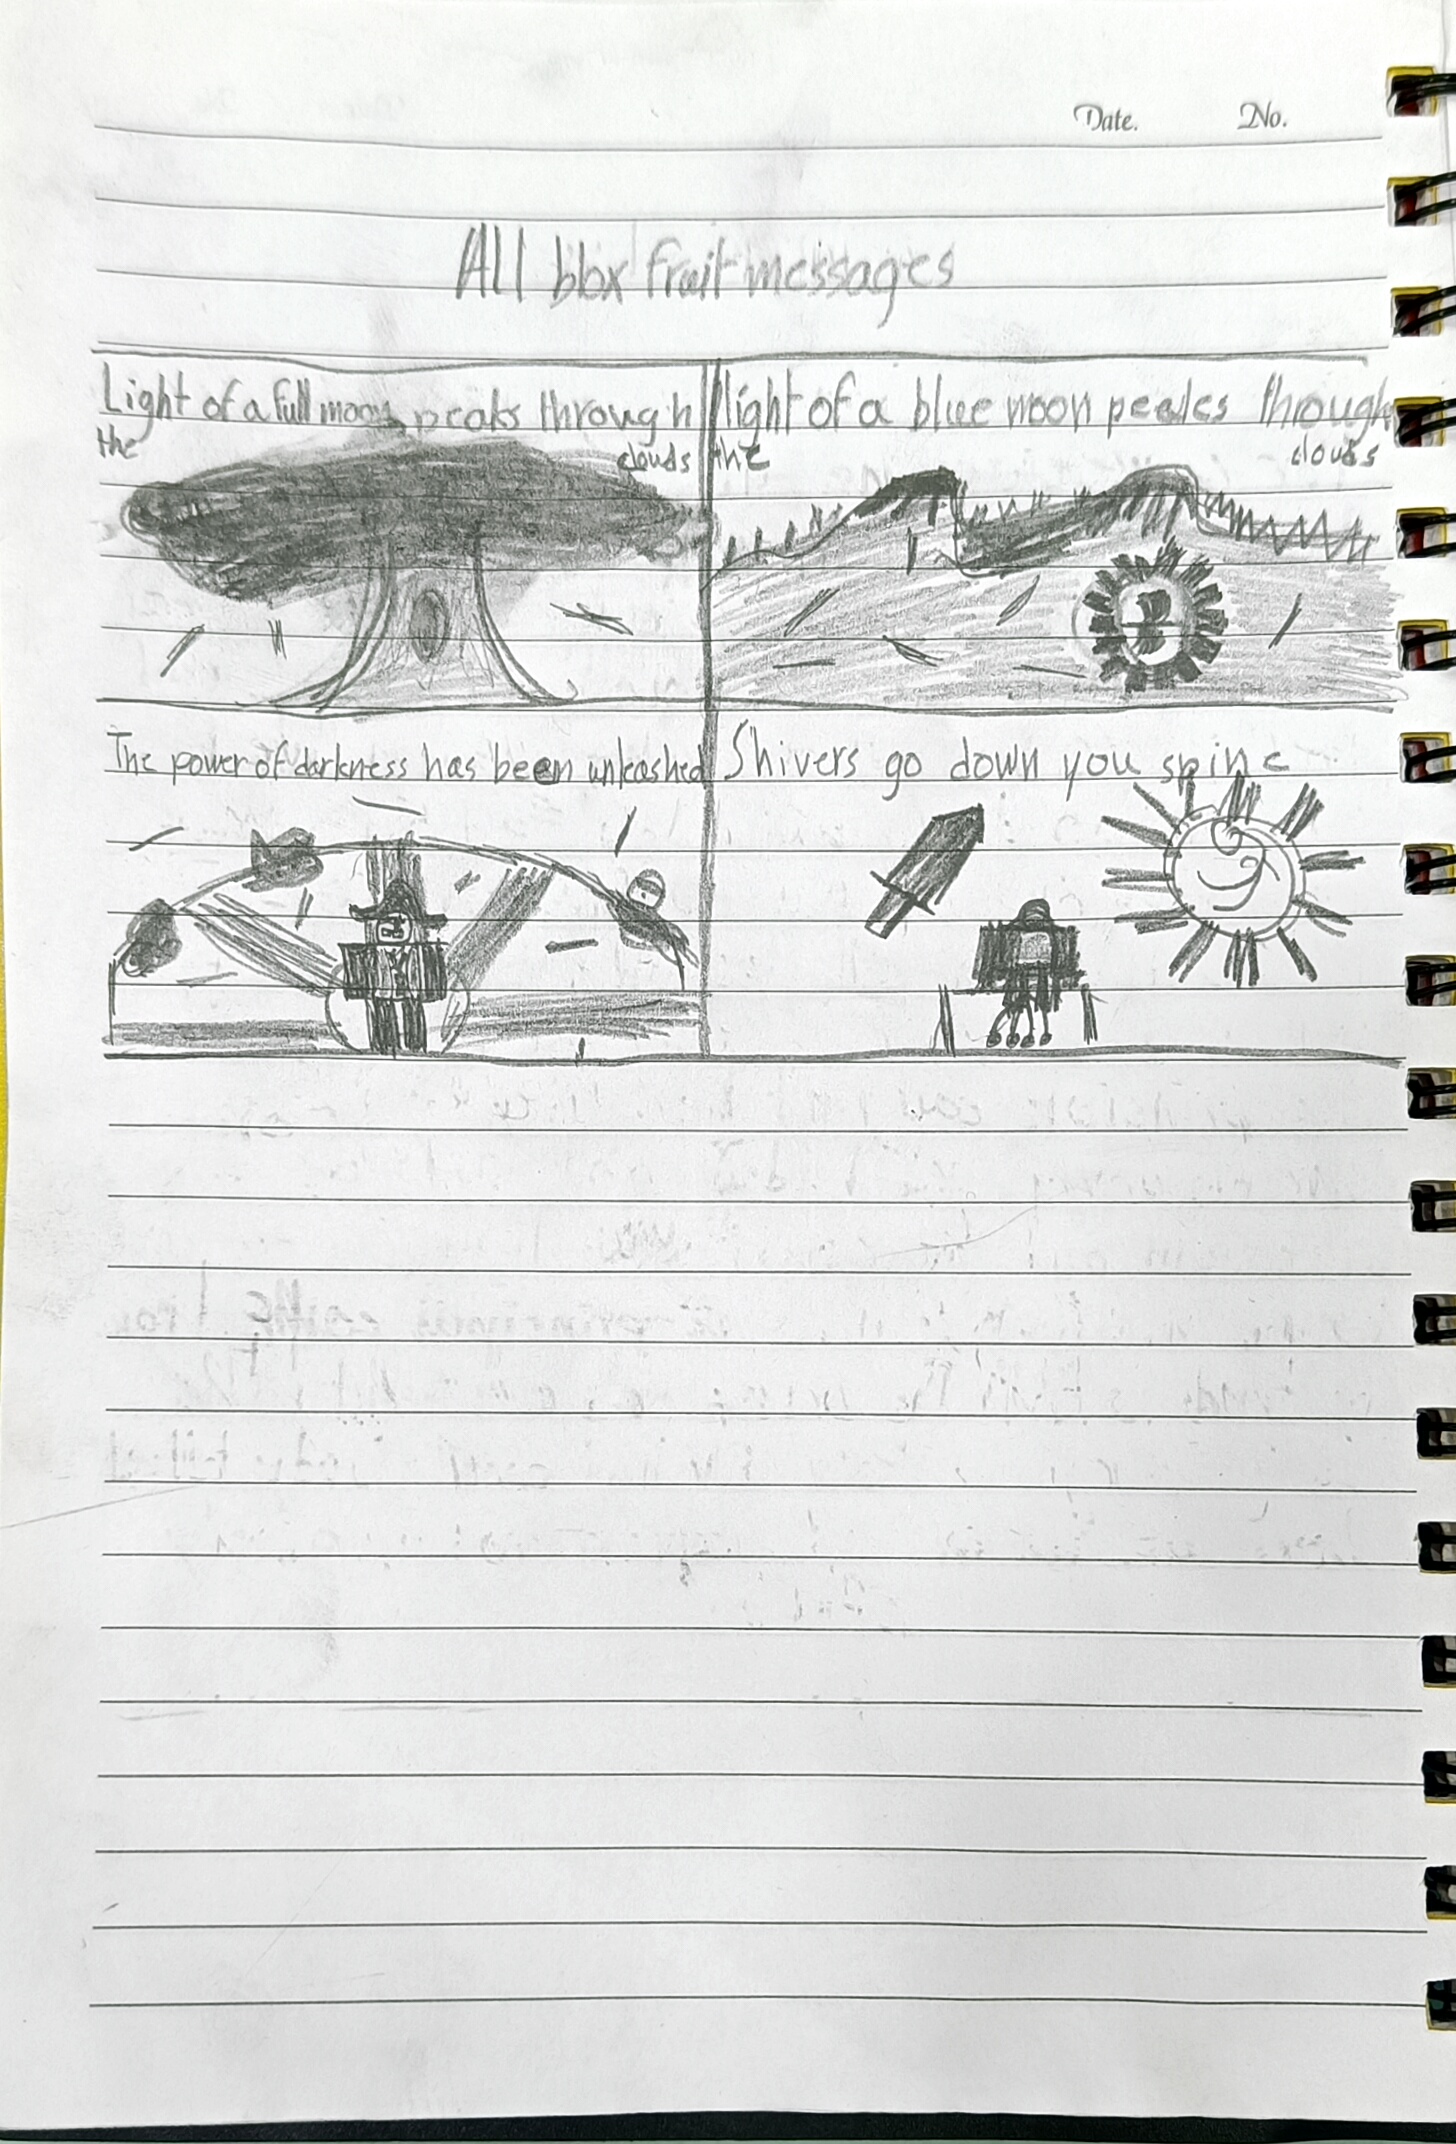 Date. No.
All blox fruit messages
Light of a full moon peaks through
the clouds
light of a blue moon peeks through
the clouds
The power of darkness has been unleashed
Shivers go down you spine